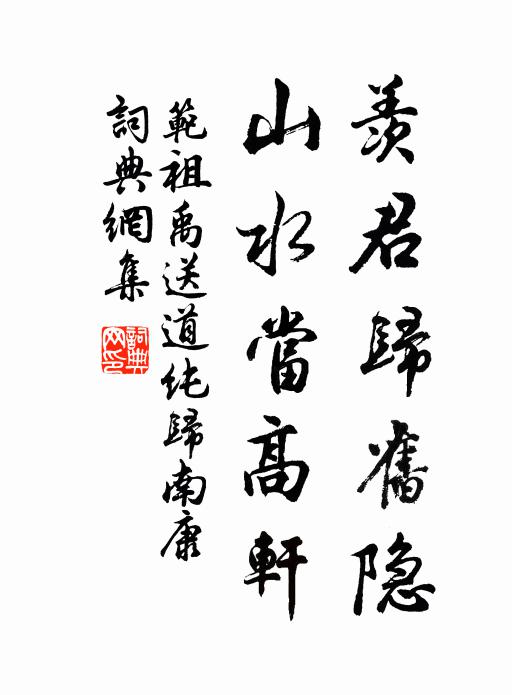 羨君歸舊隐
山水當高軒
範祖禹送道純歸南康
詞典網集
詞典
网印